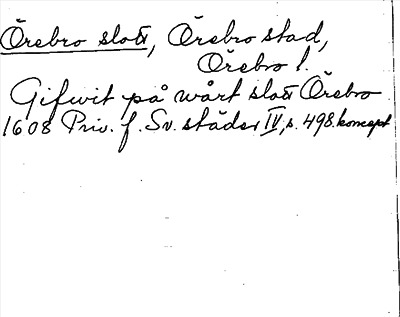 Örebro slott, Örebro stad,
Örebro l.
Gifwit på wårt slott Örebro
1608 Priv. f. Sv. städer IV, s. 498. koncept